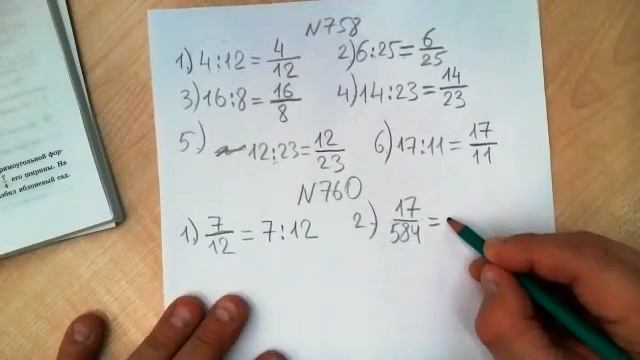 N758
1) 4:12 = 4/12 2) 6:25 = 6/25
3) 16:8 = 16/8 4) 14:23 = 14/23
5) 12:23 = 12/23 6) 17:11 = 17/11
N760
1) 7/12 = 7:12 2) 17/584 =
рямоугольной фор-
его ширины. На
яблоневый сад.